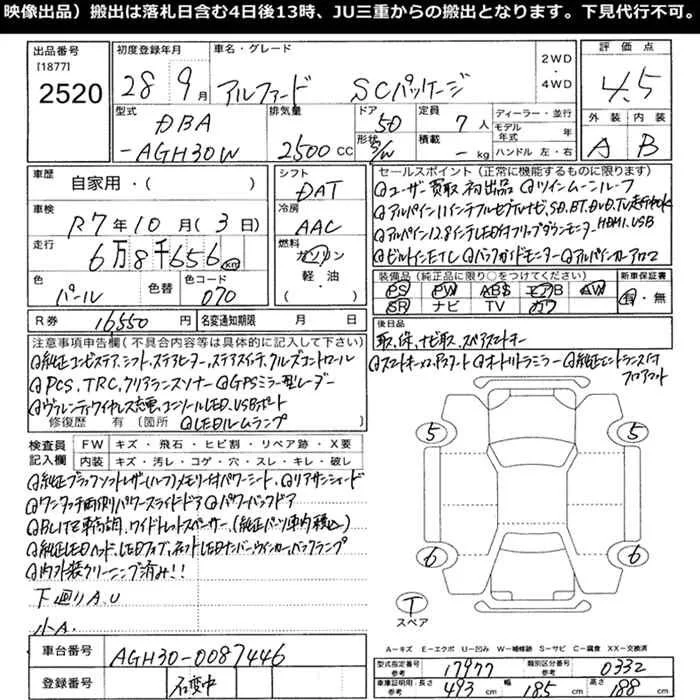 映像出品）搬出は落札日含む4日後13時、JU三重からの搬出となります。下見代行不可。
出品番号
[1877]
2520
初度登録年月
28 9月
車名・グレード
アルファード SCパッケージ
2WD
・
4WD
評価点
4.5
外装 内装
A B
型式
DBA
-AGH30W
排気量
2500CC
ドア
5D
形状
S/W
定員
7人
積載
- kg
ディーラー・並行
モデル年式 年
ハンドル 左・右
車歴
自家用・( )
車検
R7年10月(3日)
走行
6万8千656 km
色
パール
色替
色コード
070
シフト
DAT
冷房
AAC
燃料
ガソリン
軽・油
R券 16550円
名変通知期限 月 日
セールスポイント（正常に機能するものに限ります）
@ユーザー買取 初出品 @ツインムーンルーフ
@アルパイン11インチフルセグTVナビ、SD、BT、DVD、TV走行OK
HDMI、USB
@アルパイン12.8インチLED付フリップダウンモニター
@ビルトインETC @バックガイドモニター @アルパインカーアロマ
装備品（純正品に限り○をつけてください）
新車保証書
PS PW ABS エアB AW
SR ナビ TV カワ
有・無
後日品
取、保、ナビ取、スペアスマートキー
@スマートキー×2、Pスタート @オートリトラミラー @純正エントランス付
フロアマット
注意事項申告欄（不具合内容等は具体的に記入して下さい）
@純正コンビステア、シフト、ステアヒーター、ステアスイッチ、クルーズコントロール
@PCS、TRC、クリアランスソナー @GPSミラー型レーダー
@ヴァレンティワイヤレス充電、コンソールLED、USBポート
修復歴 有（箇所 @LEDルームランプ
検査員
記入欄
FW キズ・飛石・ヒビ割・リペア跡・X要
内装 キズ・汚レ・コゲ・穴・スレ・キレ・破レ
@純正ブラックソフトレザー(ハーフ)メモリー付パワーシート @リアサンシェード
@ワンタッチ両側パワースライドドア @パワーバックドア
@BLITZ車高調、ワイドトレッドスペーサー、(純正パーツ車内積込)
@純正LEDヘッド、LEDフォグ、ネットLEDナンバー、ウインカー、バックランプ
@内外装クリーニング済み!!
下廻りA.U
小A.
5 5
6 6
T
スペア
A－キズ E－エクボ U－凹み W－補修跡 S－サビ C－腐食 XX－交換済
車台番号 AGH30-0087446
登録番号 名変中
型式指定番号
参考
17977
類別区分番号
参考
0332
車庫証明用・長さ
参考
493cm
幅
185cm
高さ
参考
188cm